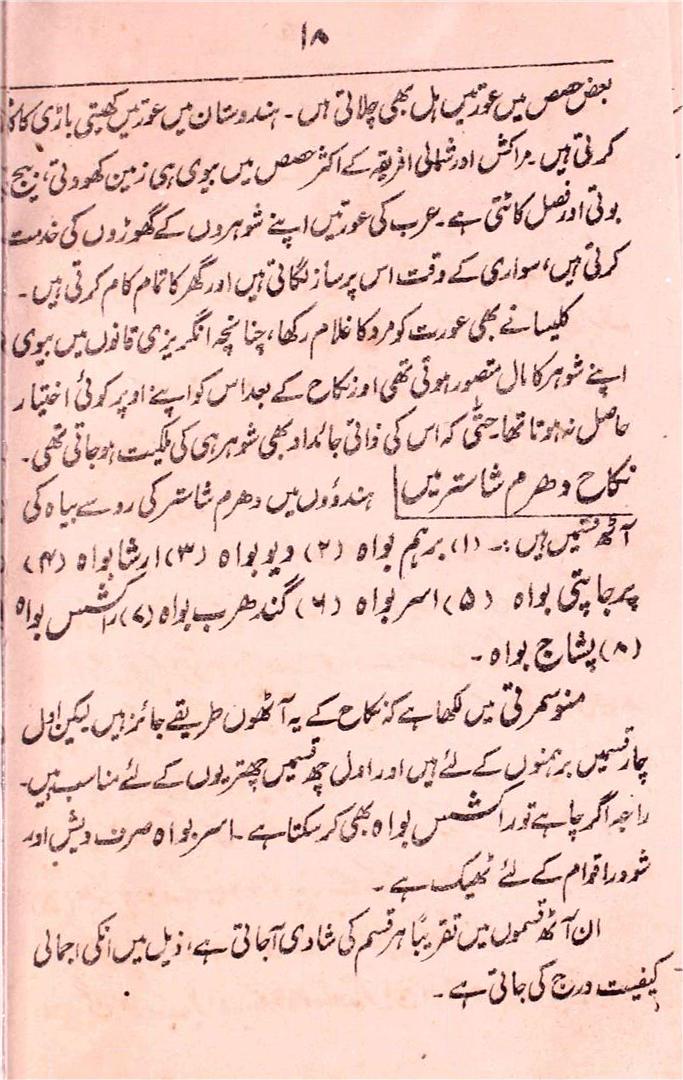 ۱۸
بعض حصص میں عورتیں ہل بھی چلاتی ہیں۔ ہندوستان میں عورتیں کھیتی باڑی کا کام
کرتی ہیں۔ مراکش اور شمالی افریقہ کے اکثر حصص میں بیوی ہی زمین کھودتی، بیج
بوتی اور فصل کاٹتی ہے۔ عرب کی عورتیں اپنے شوہروں کے گھوڑوں کی خدمت
کرتی ہیں، سواری کے وقت اس پر ساز لگاتی ہیں اور گھر کا تمام کام کرتی ہیں۔
کلیسا نے بھی عورت کو مرد کا غلام رکھا، چنانچہ انگریزی قانون میں بیوی
اپنے شوہر کا مال متصور ہوتی تھی اور نکاح کے بعد اس کو اپنے اوپر کوئی اختیار
حاصل نہ ہوتا تھا۔ حتیٰ کہ اس کی ذاتی جائداد بھی شوہر ہی کی ملکیت ہو جاتی تھی۔
نکاح دھرم شاستر میں ہندوؤں میں دھرم شاستر کی رو سے بیاہ کی
آٹھ قسمیں ہیں :۔ (۱) برہم بواہ (۲) دیو بواہ (۳) ارشا بواہ (۴)
پرجاپتی بواہ (۵) اسر بواہ (۶) گندھرب بواہ (۷) راکشس بواہ
(۸) پشاچ بواہ ۔
منو سمرتی میں لکھا ہے کہ نکاح کے یہ آٹھوں طریقے جائز ہیں لیکن اول
چار قسمیں برہمنوں کے لئے ہیں اور اول چھ قسمیں چھتریوں کے لئے مناسب ہیں۔
راجہ اگر چاہے تو راکشس بواہ بھی کر سکتا ہے۔ اسر بواہ صرف ویش اور
شودر اقوام کے لئے ٹھیک ہے ۔
ان آٹھ قسموں میں تقریباً ہر قسم کی شادی آ جاتی ہے، ذیل میں انکی اجمالی
کیفیت درج کی جاتی ہے ۔